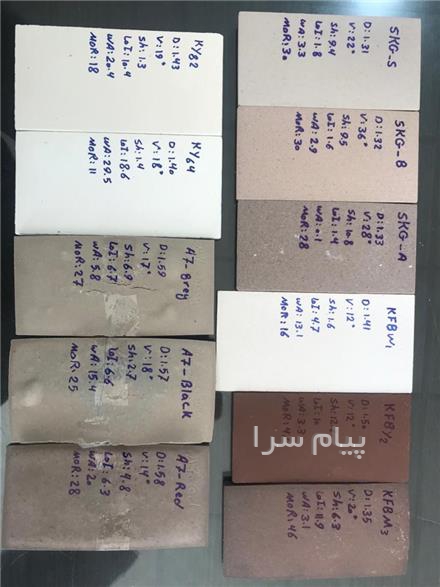 KY82
D:1.43
V:19°
Sh:1.3
LoI:10.4
WA:20.4
MoR:18
KY64
D:1.40
V:18°
Sh:1.4
LoI:18.6
WA:29.5
MoR:11
A7-Grey
D:1.59
V:17°
Sh:6.9
LoI:6.7
WA:9.8
MoR:27
A7-Black
D:1.57
V:18°
Sh:2.7
LoI:6.6
WA:15.4
MoR:25
A7-Red
D:1.58
V:14°
Sh:4.8
LoI:6.3
WA:20
MoR:28
SKG-S
D:1.31
V:22°
Sh:9.4
LoI:1.8
WA:3.3
MoR:30
SKG-B
D:1.32
V:36°
Sh:9.5
LoI:1.6
WA:2.9
MoR:30
SKG-A
D:1.33
V:28°
Sh:10.8
LoI:1.4
WA:0.1
MoR:28
KFBW1
D:1.41
V:12°
Sh:1.6
LoI:4.7
WA:13.1
MoR:16
KFBY2
D:1.50
V:12°
WA:3.3
KFBM3
D:1.35
V:20°
Sh:6.3
LoI:11.9
WA:3.1
MoR:46
پیام سرا